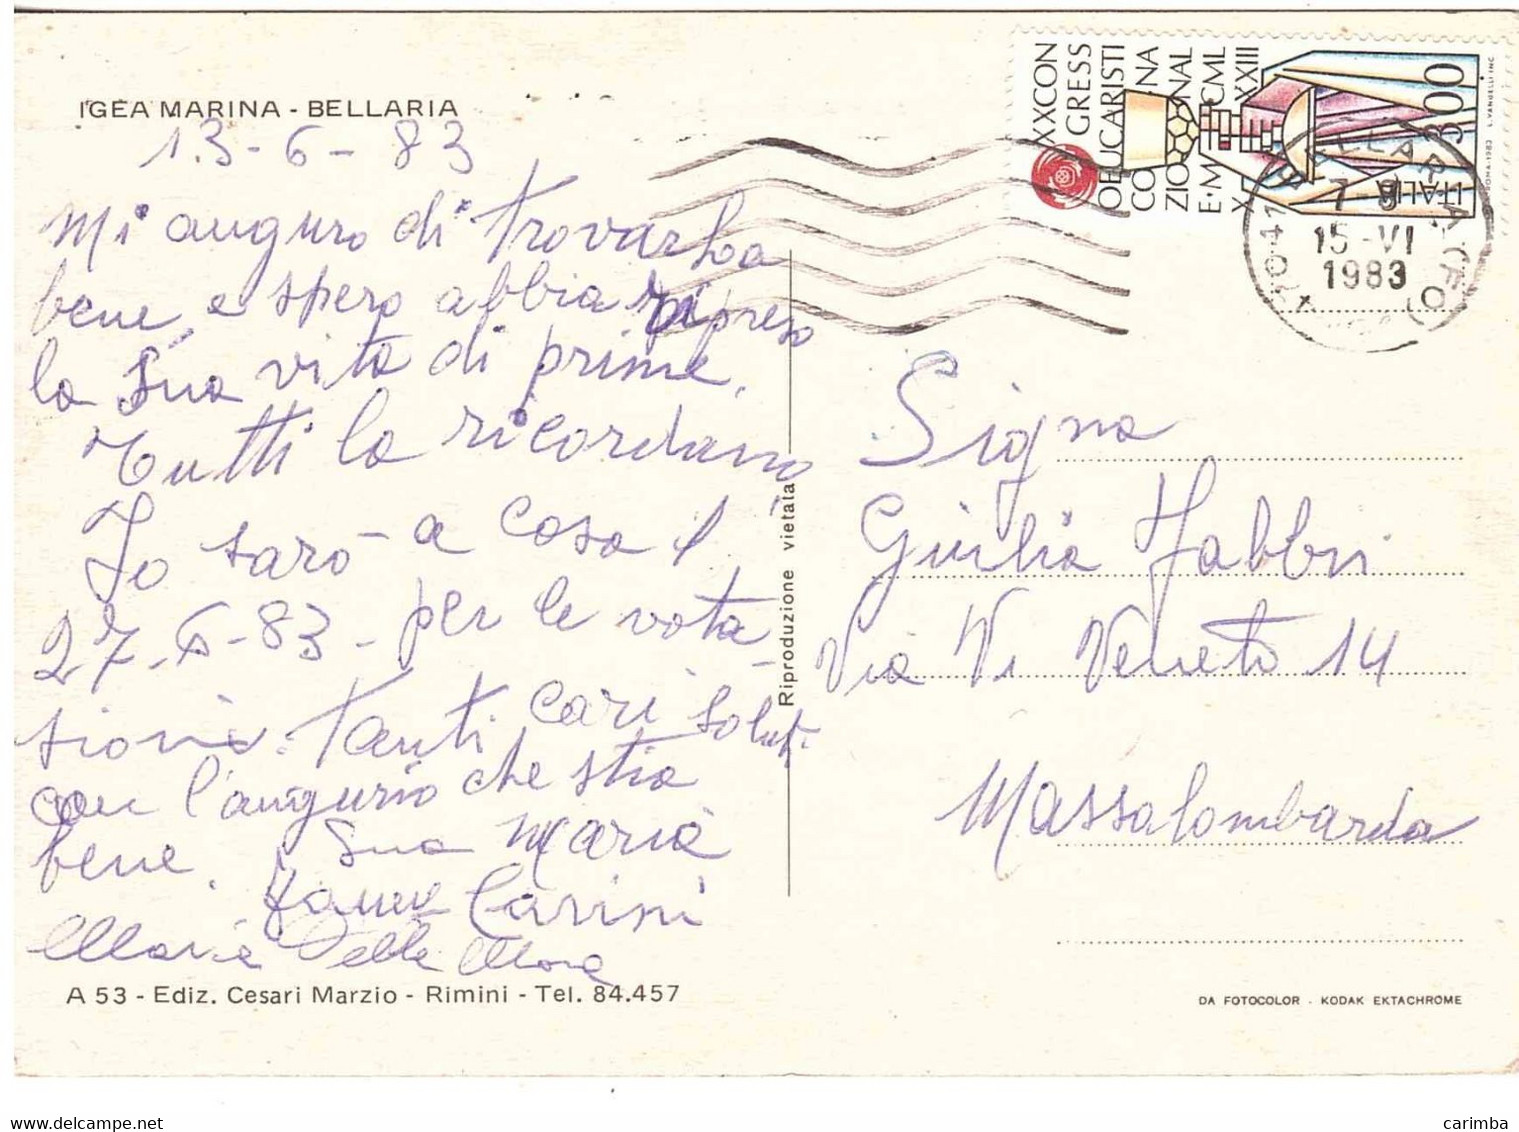 IGEA MARINA - BELLARIA
13-6-83
Mi auguro di trovarla
bene, e spero abbia ripreso
la Sua vita di prima.
Tutti la ricordano
Io sarò a casa il
27-6-83 - per le vota-
zioni. Tanti cari saluti
con l'augurio che stia
bene. Sua Maria
Carini
Maria Della Mora
A 53 - Ediz. Cesari Marzio - Rimini - Tel. 84.457
Riproduzione vietata
XXCON
GRESS
OEUCARISTI
CO NA
ZIO NAL
E·M CML
X XXIII
ITALIA 300
ROMA-1983 L. VANGELLI INC.
15-VI
1983
Sigra
Giulia Fabbri
Via Vi Veneto 14
Massalombarda
DA FOTOCOLOR - KODAK EKTACHROME
carimba